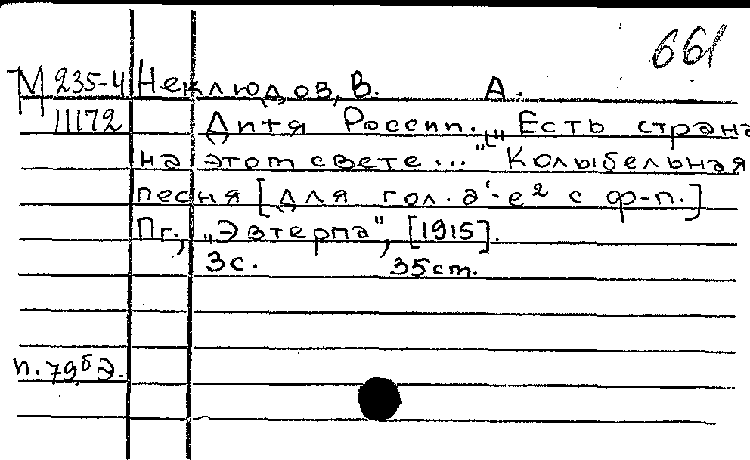 661
М 235-4 Неклюдов, В. А.
11172 Дитя России. „Есть страна
на этом свете..." Колыбельная
песня [для гол. d¹-e² с ф-п.]
Пг., „Эвтерпа", [1915].
3с. 35ст.
п. 79бэ.